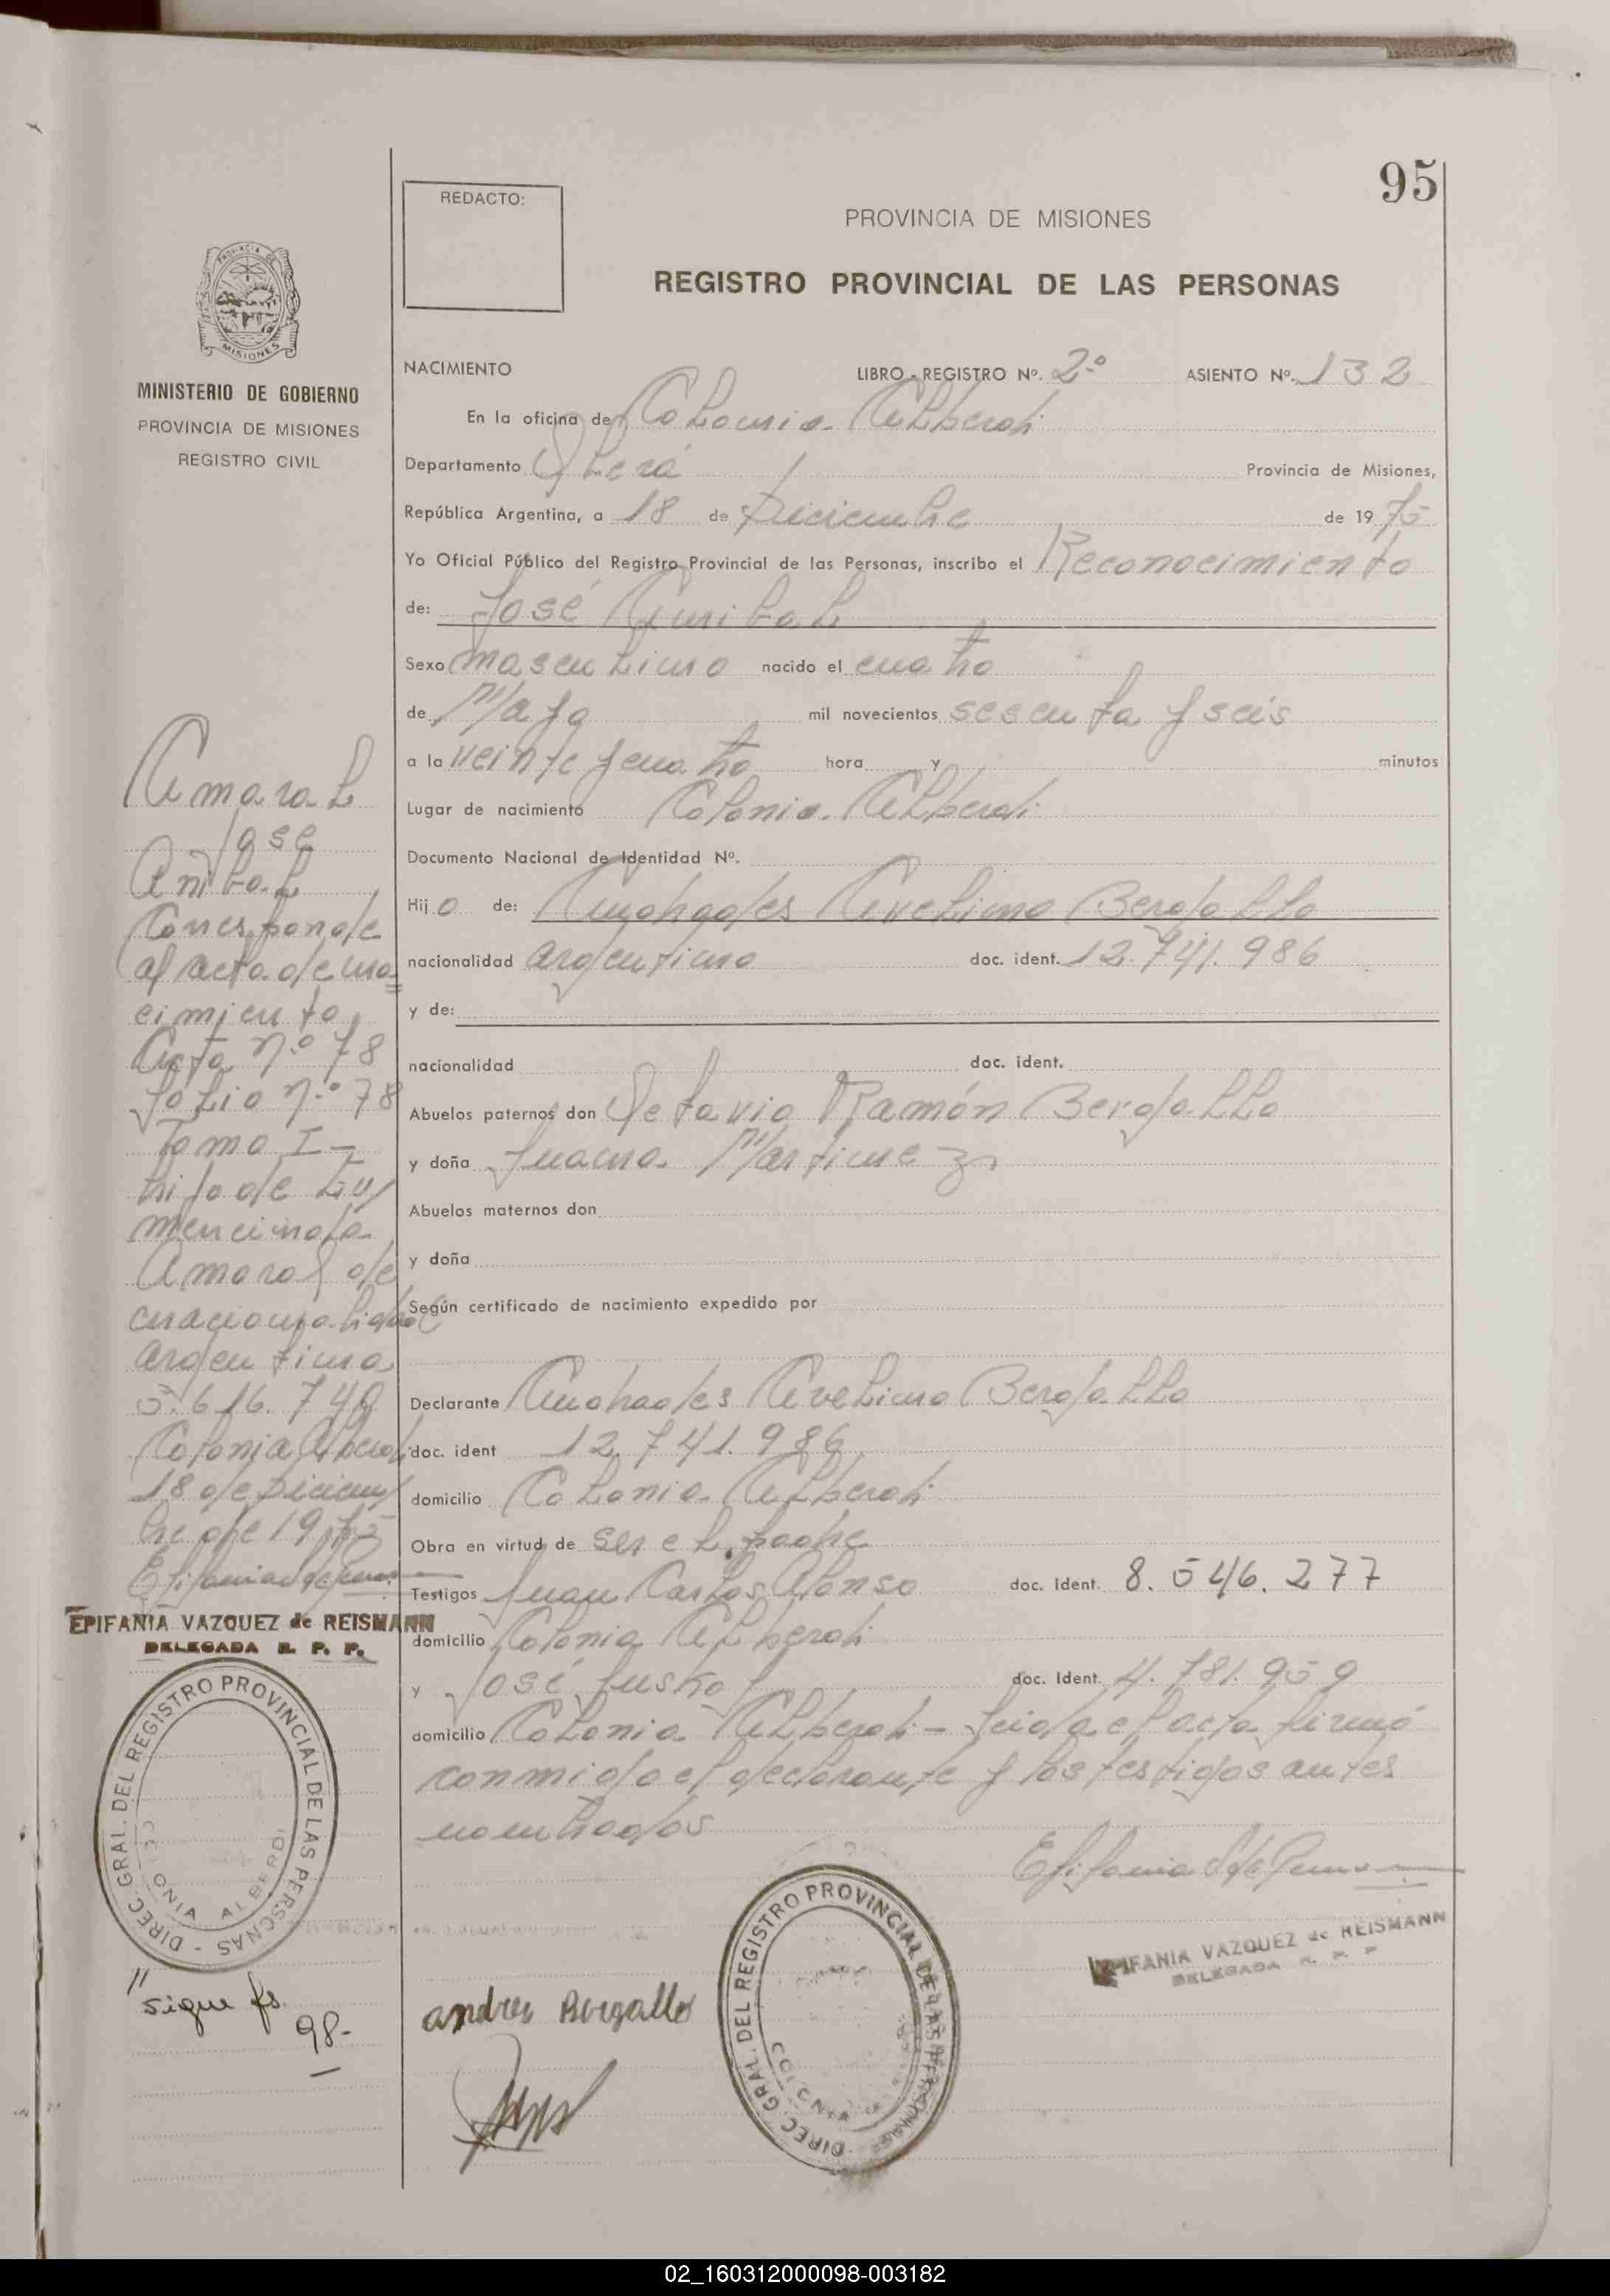 95
REDACTO:
PROVINCIA DE MISIONES
REGISTRO PROVINCIAL DE LAS PERSONAS
PROVINCIA DE
MISIONES
MINISTERIO DE GOBIERNO
PROVINCIA DE MISIONES
REGISTRO CIVIL
NACIMIENTO LIBRO - REGISTRO Nº. 2º ASIENTO Nº. 132
En la oficina de Colonia Alberdi
Departamento Oberá Provincia de Misiones,
República Argentina, a 18 de Diciembre de 1975
Yo Oficial Público del Registro Provincial de las Personas, inscribo el Reconocimiento
de: José Anibal
Sexo masculino nacido el cuatro
de Mayo mil novecientos sesenta y seis
a la veinte y cuatro hora y minutos
Lugar de nacimiento Colonia Alberdi
Documento Nacional de Identidad Nº.
Hijo de: Andrades Avelino Bergallo
nacionalidad argentino doc. ident. 12.741.986
y de:
nacionalidad doc. ident.
Abuelos paternos don Octavio Ramón Bergallo
y doña Juana Martinez
Abuelos maternos don
y doña
Según certificado de nacimiento expedido por
Declarante Andrades Avelino Bergallo
doc. ident 12.741.986
domicilio Colonia Alberdi
Obra en virtud de ser el padre
Testigos Juan Carlos Alonso doc. ident. 8.546.277
domicilio Colonia Alberdi
y José doc. ident. 4.781.959
domicilio Colonia Alberdi - Leida el acta firmó
conmigo el declarante y los testigos antes
nombrados
EPIFANIA VAZQUEZ de REISMANN
DELEGADA R. P. P.
andres Bergallo
DIREC. GRAL. DEL REGISTRO PROVINCIAL DE LAS PERSONAS
COLONIA
Amaral
Jose
Anibal
Corresponde
al acta de na
cimiento
Acta nº 78
Folio nº 78
Tomo I -
hijo de Lu
mencinda
Amaral de
nacionalidad
argentina
5.616.740
Colonia Alberdi
18 de Diciem
bre de 1975
EPIFANIA VAZQUEZ de REISMANN
DELEGADA R. P. P.
DIREC. GRAL. DEL REGISTRO PROVINCIAL DE LAS PERSONAS
COLONIA ALBERDI
" sigue fs.
98-
02_160312000098-003182